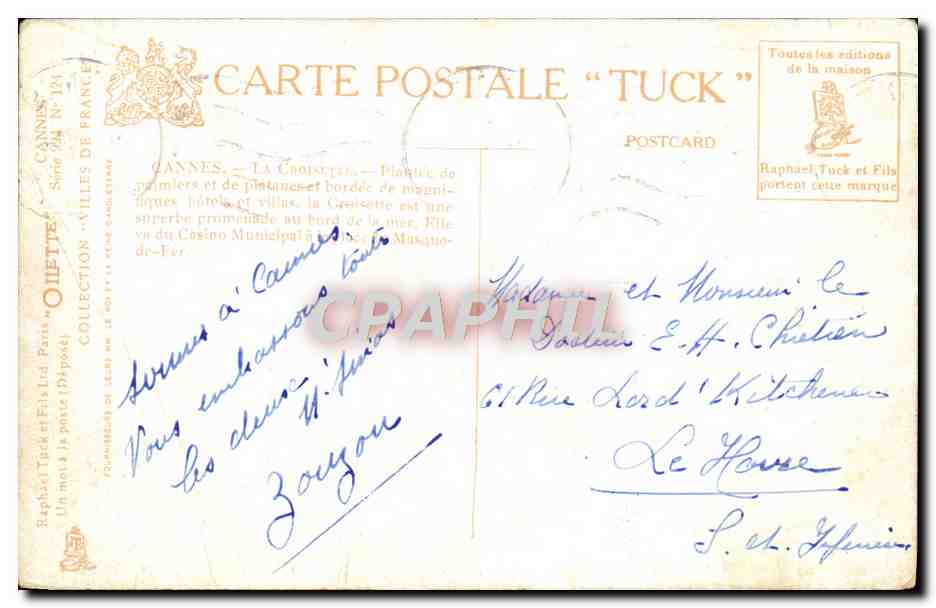 CARTE POSTALE "TUCK"
POSTCARD
Toutes les éditions
de la maison
Raphael Tuck et Fils
portent cette marque
CANNES. — LA CROISETTE. — Plantée de
palmiers et de platanes et bordée de magni-
fiques hôtels et villas, la Croisette est une
superbe promenade au bord de la mer. Elle
va du Casino Municipal à la place du Masque-
de-Fer.
Raphael Tuck et Fils Ltd. Paris "OILETTE" CANNES
Un mot à la poste (Déposé) Série 994 No 124
COLLECTION "VILLES DE FRANCE"
FOURNISSEURS DE LEURS MM. LE ROI ET LA REINE D'ANGLETERRE
Sommes à Cannes.
Vous embrassons toute
les deux
Zouzou
Madame et Monsieur le
Docteur E. H. Chrétien
61 Rue Lord Kitchener
Le Havre
S. et Inferieure
CPAPHIL